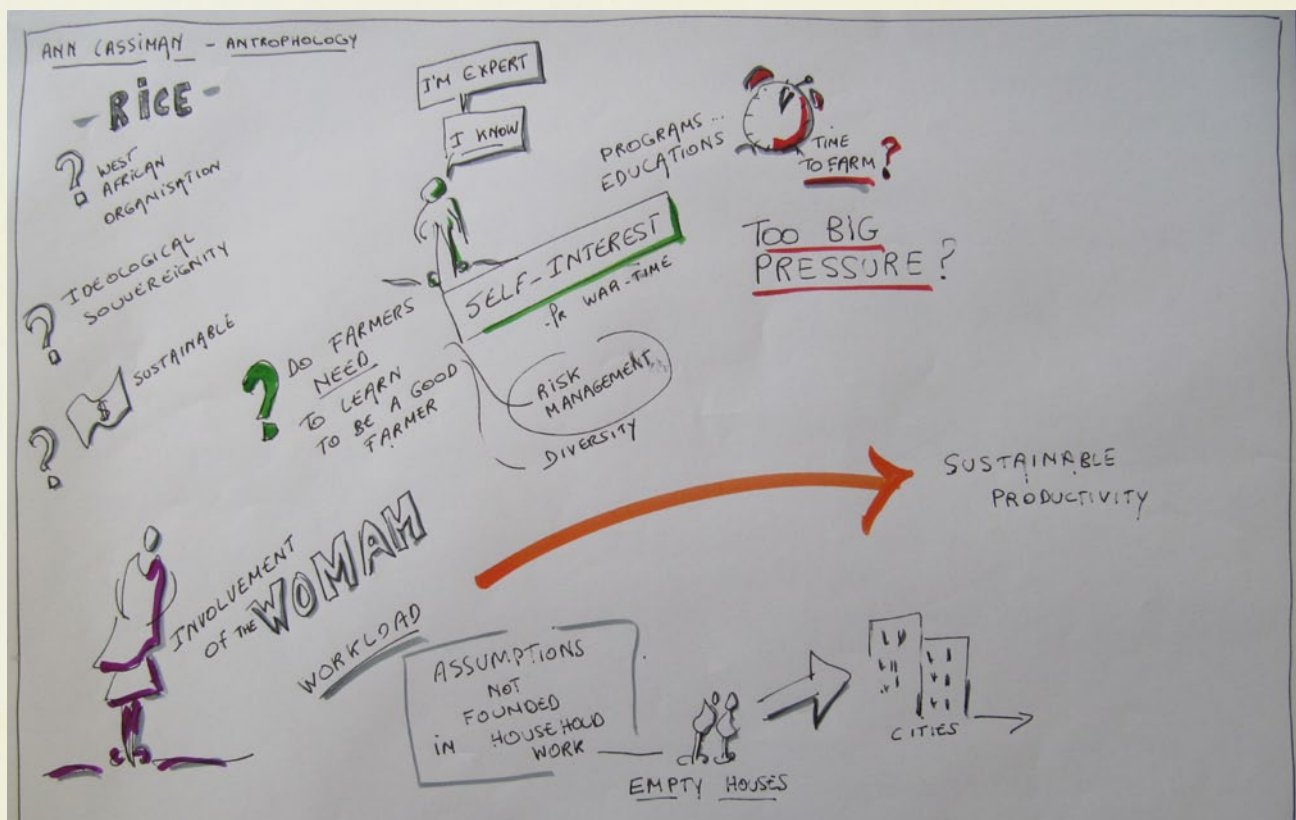 ANN CASSIMAN - ANTROPHOLOGY
- RICE -
? WEST
AFRICAN
ORGANISATION
? IDEOLOGICAL
SOUVEREIGNITY
? $ SUSTAINABLE
I'M EXPERT
I KNOW
SELF-INTEREST
WAR-TIME
PROGRAMS...
EDUCATIONS
TIME
TO FARM?
TOO BIG
PRESSURE?
? DO FARMERS
NEED
TO LEARN
TO BE A GOOD
FARMER
RISK
MANAGEMENT
DIVERSITY
SUSTAINABLE
PRODUCTIVITY
INVOLVEMENT
OF THE WOMAM
WORKLOAD
ASSUMPTIONS
NOT
FOUNDED
IN HOUSEHOLD
WORK
EMPTY HOUSES
CITIES